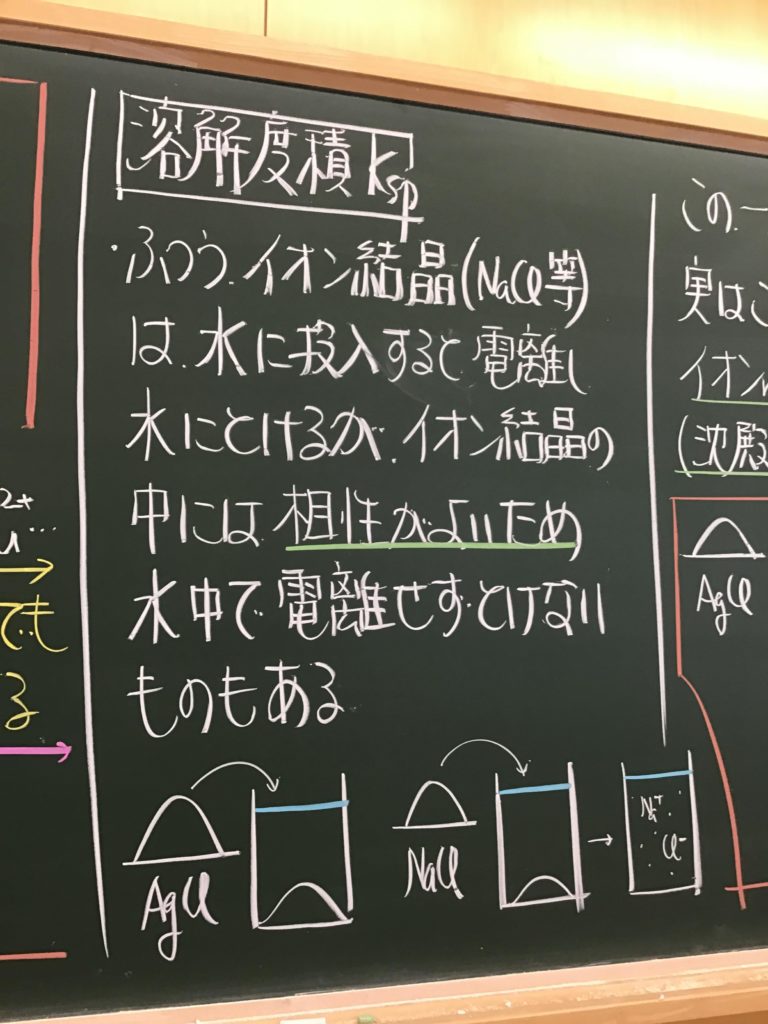 溶解度積 Ksp
・ふつう、イオン結晶(NaCl等)
は、水に投入すると電離し
水にとけるが、イオン結晶の
中には相性がよいため
水中で電離せず、とけない
ものもある
AgCl
NaCl
→
Na⁺
Cl⁻
2+
でも
る
この
実はこ
イオン
(沈殿
AgCl